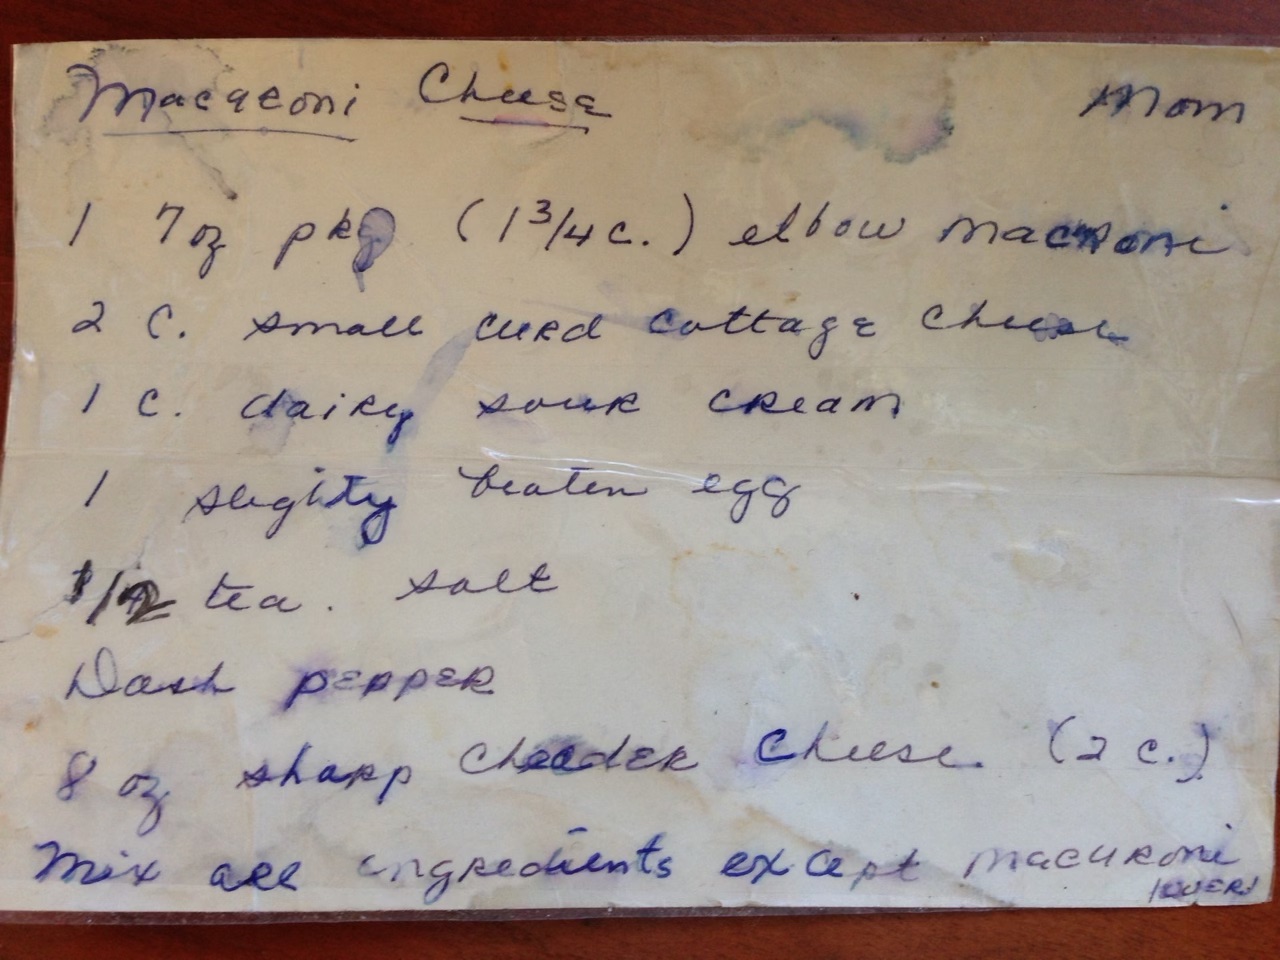 Macaroni Cheese Mom
1 7oz pkg (1 3/4 c.) elbow macaroni
2 C. small curd cottage cheese
1 C. dairy sour cream
1 slighty beaten egg
1/2 tea. salt
Dash pepper
8 oz sharp chedder cheese. (2 c.)
Mix all ingredients except macaroni
(OVER)